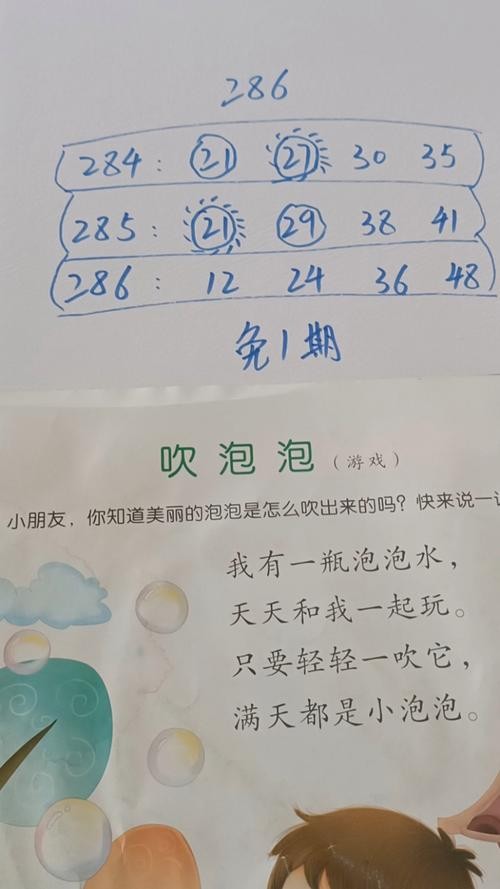 286
284: 21 27 30 35
285: 21 29 38 41
286: 12 24 36 48
免1期
吹泡泡(游戏)
小朋友,你知道美丽的泡泡是怎么吹出来的吗?快来说一
我有一瓶泡泡水,
天天和我一起玩。
只要轻轻一吹它,
满天都是小泡泡。